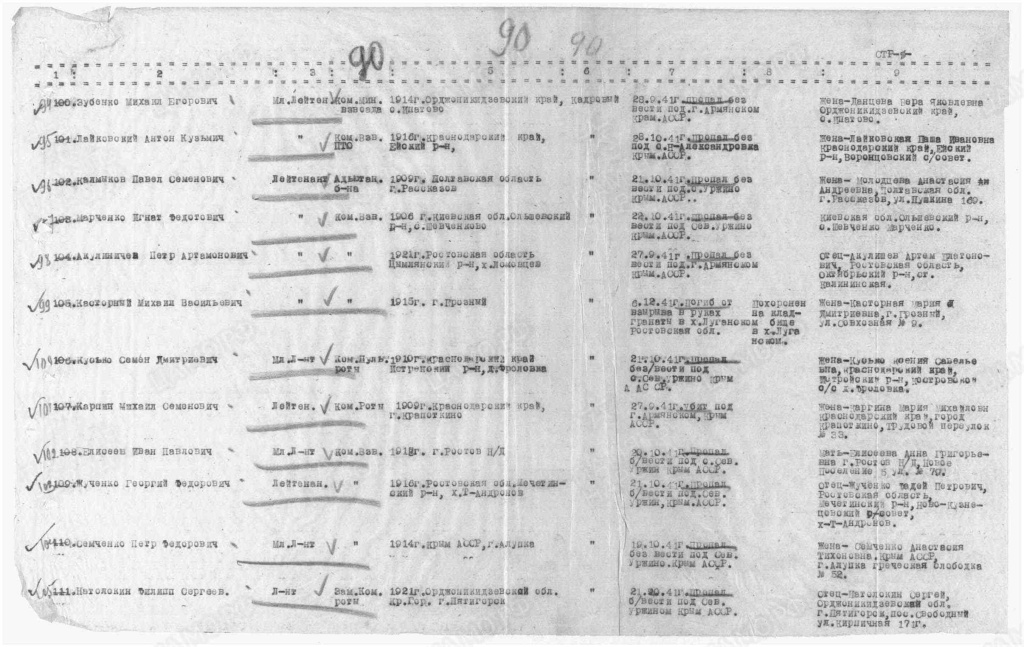 90 90
90
СТР-9-
1 : 2 : 3 : : 5 : 6 : 7 : 8 : 9
94 100.Зубенко Михаил Егорович Мл.Лейтен Ком.мин. 1914г.Орджоникидзевский край, Кадровый 28.9.41г.пропал без Жена-Данцева Вера Яковлевна
взвода с.Ипатово вести под г.Армянском Орджоникидзевский край,
Крым.АССР. с.Ипатово.
95 101.Лайковский Антон Кузьмич " Ком.Взв. 1916г.Краснодарский край, " 28.10.41г.Пропал без Жена-Лайковская Паша Ивановна
ПТО Ейский р-н, под с.Н-Александровка Краснодарский край,Ейский
Крым.АССР. р-н,Воронцовский с/совет.
96 102.Калмыков Павел Семенович Лейтенант Адъютан. 1909г. Полтавская область " 21.10.41г.Пропал без Жена- Молодцева Анастасия Ан
б-на г.Рассказов вести под.с.Уржино Андреевна,Полтавская обл.
Крым.АССР.. г.Рассказов,ул.Пушкина 169.
103.Марченко Игнат Федотович " Ком.Взв. 1906 г.Киевская обл.Ольшевский " 22.10.41г.Пропал без Киевская обл.Ольшевский р-н,
р-н,с.Шевченково вести под Сев.Уржино с.Шевченко Марченко.
Крым.АССР.
98 104.Акулиничев Петр Артамонович " " 1921г.Ростовская область " 27.9.41г.Пропал без Отец-Акулишев Артем Платоно-
Цымлянский р-н,х.Ломовцев вести под.г.Армянском вич, Ростовская область,
Крым.АССР. Октябрьский р-н,ст.
Калининская.
99 105.Касторный Михаил Васильевич " " 1915г. г.Грозный " 6.12.41г.Погиб от Похоронен Жена-Касторная Мария
взрыва в руках на клад- Дмитриевна,г.Грозный,
гранаты в х.Луганском бище ул.Совхозная № 9.
Ростовская обл. в х.Луга
нском.
106.Кусько Семен Дмитриевич Мл.Л-нт Ком.Пуль. 1910г.Краснодарский край " 21.10.41г.Пропал Жена-Кусько Ксения Савелье
роты р-н,х.Фроловка без/вести под вна,Краснодарский край,
с.Сев.Уржино Крым р-н,
А АС СР. с/с х.Фроловка.
101 107.Карпин Михаил Семенович Лейтен. Ком.Роты 1909г.Краснодарский край, " 27.9.41г.убит под Жена-Каргина Мария Михайловн
г.Крапоткино г.Армянском,Крым Краснодарский край,город
АССР. Крапоткино,Трудовой переулок
№ 33.
102 108.Елисеев Иван Павлович Мл.Л-нт Ком.Взв. 1912г. г.Ростов Н/Д " 20.10.41г.Пропал Мать-Елисеева Анна Григорье-
б/вести под с.Сев. вна г.Ростов Н/Д,Новое
Уржин Крым АССР. Поселение 5 ул. № 70.
103 109.Жученко Георгий Федорович Лейтенан. " 1916г.Ростовская обл.Мечетин- " 21.10.41г.Пропал Отец-Жученко Фадей Петрович,
ский р-н, х.Т-Андронов б/вести под.Сев. Ростовская область,
Уржин,Крым.АССР. Мечетинский р-н,Ново-Кузне-
цовский с/совет,
х-Т-Андронов.
110.Семченко Петр Федорович Мл.Л-нт " 1914г.Крым АССР,г.Алупка " 19.10.41г.Пропал Жена- Семченко Анастасия
без вести под Сев. Тихоновна.Крым АССР,
Уржино.Крым АССР. г.Алупка Греческая Слободка
№ 52.
105 111.Натолокин Филипп Сергеев. Л-нт Зам.Ком. 1921г.Орджоникидзевская обл. " 21.20.41г.Пропал Отец-Натолокин Сергей,
роты Кр.Гор. г.Пятигорск б/вести под Сев. Орджоникидзевский обл.
Уржином Крым АССР. г.Пятигорск,пос.Свободный
ул.Кирпичная 171г.